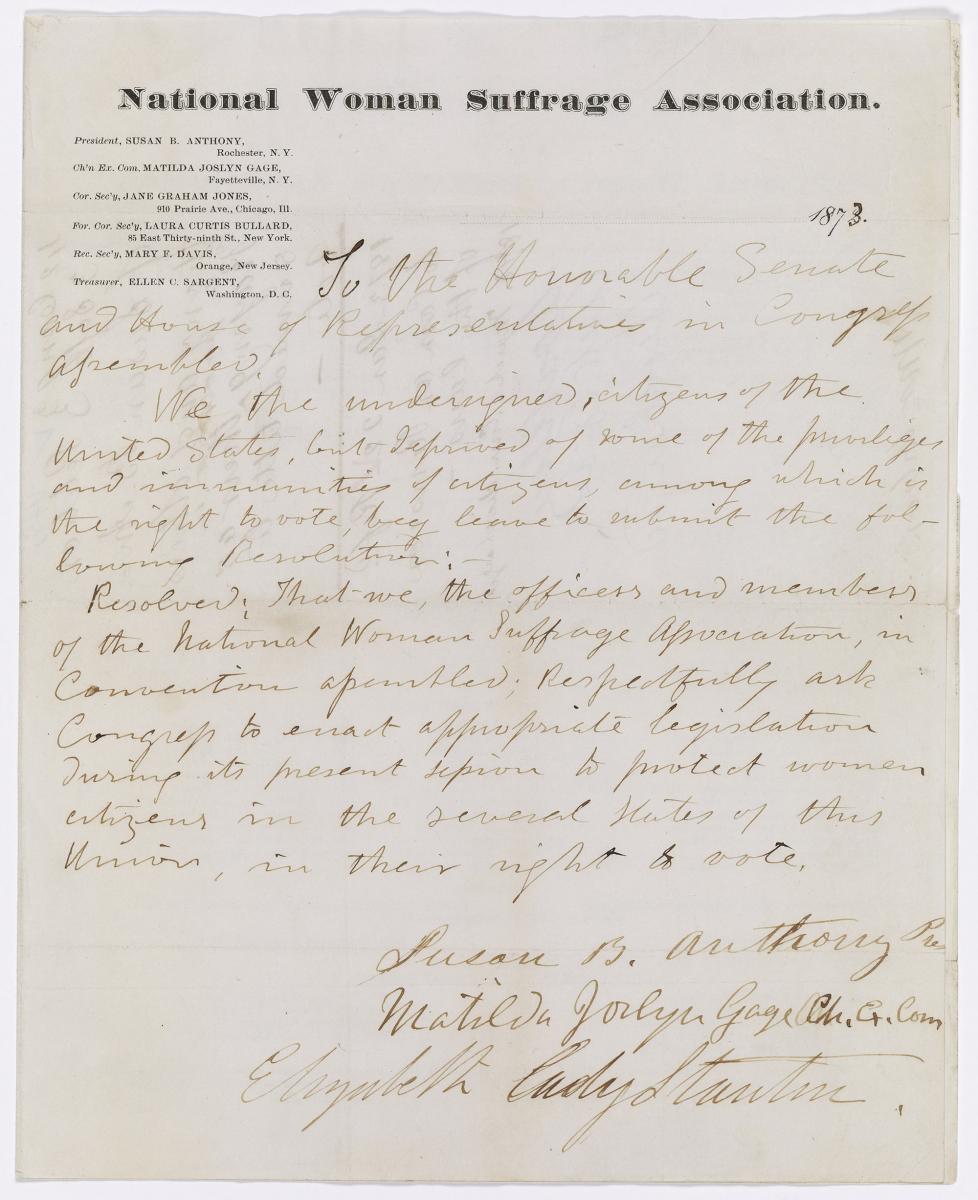 National Woman Suffrage Association.
President, SUSAN B. ANTHONY,
Rochester, N. Y.
Ch'n Ex. Com, MATILDA JOSLYN GAGE,
Fayetteville, N. Y.
Cor. Sec'y, JANE GRAHAM JONES,
910 Prairie Ave., Chicago, Ill.
For. Cor. Sec'y, LAURA CURTIS BULLARD,
85 East Thirty-ninth St., New York.
Rec. Sec'y, MARY F. DAVIS,
Orange, New Jersey.
Treasurer, ELLEN C. SARGENT,
Washington, D. C.
1873.
To the Honorable Senate
and House of Representatives in Congress
assembled.
We the undersigned, citizens of the
United States, but deprived of some of the priviliges
and immunities of citizens, among which is
the right to vote, beg leave to submit the fol-
lowing Resolution:-
Resolved; That we, the officers and members
of the National Woman Suffrage Association, in
Convention assembled; Respectfully ask
Congress to enact appropriate legislation
during its present session to protect women
citizens in the several States of this
Union, in their right to vote.
Susan B. Anthony Pres
Matilda Joslyn Gage Ch. Ex. Com
Elizabeth Cady Stanton.